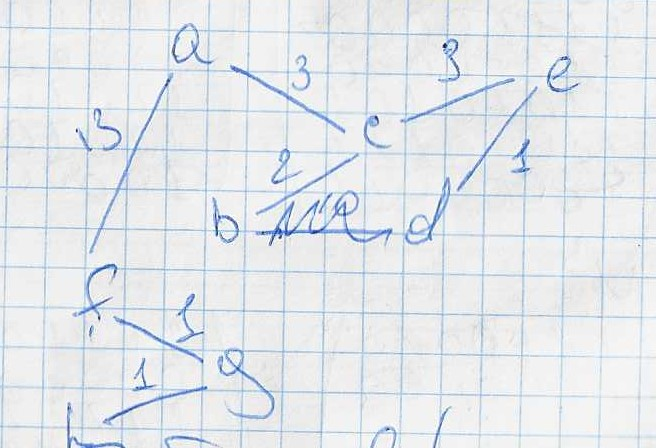 a
3 3 e
3 c
2 1
b d
f
1
1 g